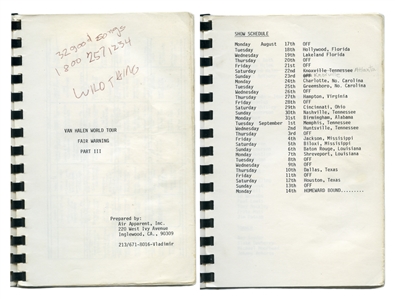 32 good songs
1 800 257 1234
WILD THING
VAN HALEN WORLD TOUR
FAIR WARNING
PART III
Prepared by:
Air Apparent, Inc.
220 West Ivy Avenue
Inglewood, CA., 90309
213/671-8016-Vladimir
SHOW SCHEDULE
Monday August 17th OFF
Tuesday 18th Hollywood, Florida
Wednesday 19th Lakeland Florida
Thursday 20th OFF
Friday 21st OFF
Saturday 22nd Knoxville Tennessee
Sunday 23rd
Monday 24th Charlotte, No. Carolina
Tuesday 25th Greensboro, No. Carolina
Wednesday 26th OFF
Thursday 27th Hampton, Virginia
Friday 28th OFF
Saturday 29th Cincinnati, Ohio
Sunday 30th Nashville, Tennessee
Monday 31st Birmingham, Alabama
Tuesday September 1st Memphis, Tennessee
Wednesday 2nd Huntsville, Tennessee
Thursday 3rd OFF
Friday 4th Jackson, Mississippi
Saturday 5th Biloxi, Mississippi
Sunday 6th Baton Rouge, Louisiana
Monday 7th Shreveport, Louisiana
Tuesday 8th OFF
Wednesday 9th OFF
Thursday 10th Dallas, Texas
Friday 11th OFF
Saturday 12th Houston, Texas
Sunday 13th OFF
Monday 14th HOMEWARD BOUND.........